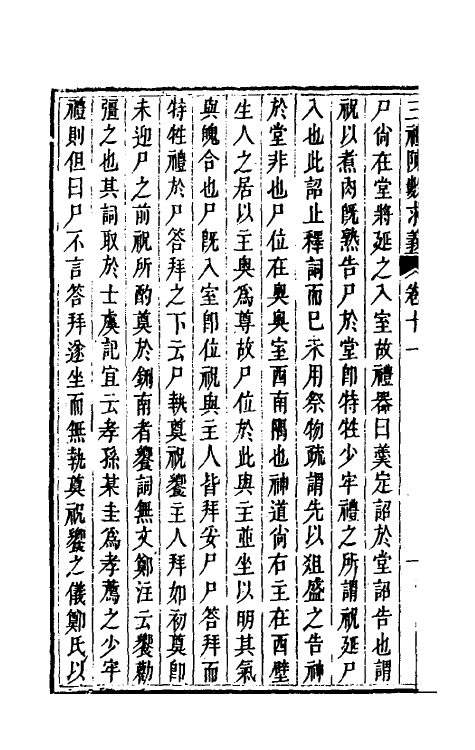 三禮陳數求義 卷十一
尸尙在堂將延之入室故禮器曰羹定詔於堂詔告也謂
祝以煮肉旣熟告尸於堂卽特牲少牢禮之所謂祝延尸
入也此詔止釋詞而巳未用祭物疏謂先以俎盛之告神
於堂非也尸位在奥奥室西南隅也神道尙右主在西壁
生人之居以主奥爲尊故尸位於此與主並坐以明其氣
與魄合也尸旣入室卽位祝與主人皆拜妥尸尸答拜而
特牲禮於尸答拜之下云尸執奠祝饗主人拜如初奠卽
未迎尸之前祝所酌奠於鉶南者饗詞無文鄭注云饗勸
彊之也其詞取於士虞記宜云孝孫某圭爲孝薦之少牢
禮則但曰尸不言答拜遂坐而無執奠祝饗之儀鄭氏以